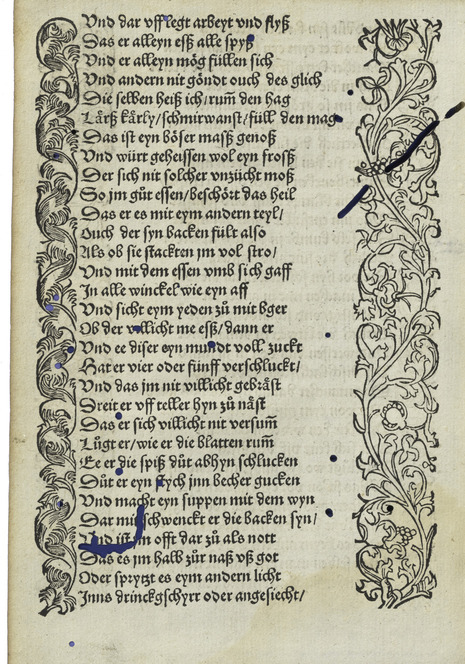 Vnd dar vff legt arbeyt vnd flyß
Das er alleyn eß alle spyß
Vnd er alleyn mög füllen sich
Vnd andern nit göndt ouch des glich
Die selben heiß ich/rum̃ den hag
Lärß kärly/schmirwanst/füll den mag
Das ist eyn böser masß genoß
Vnd würt geheissen wol eyn froß
Der sich nit solcher vnzücht moß
So jm gůt essen/beschört das heil
Das er es mit eym andern teyl/
Ouch der syn backen fült also
Als ob sie stackten jm vol stro/
Vnd mit dem essen vmb sich gaff
In alle winckel wie eyn aff
Vnd sicht eym yeden zů mit bger
Ob der villicht me eß/dann er
Vnd ee diser eyn mundt voll zuckt
Hat er vier oder fünff verschluckt/
Vnd das jm nit villicht gebräst
Dreit er vff teller hyn zů näst
Das er sich villicht nit versum̃
Lůgt er/wie er die blatten rum̃
Ee er die spiß důt abhyn schlucken
Důt er eyn stych jnn becher gucken
Vnd macht eyn suppen mit dem wyn
Dar mit schwenckt er die backen syn/
Vnd ist jm offt dar zů als nott
Das es jm halb zůr naß vß got
Oder sprytzt es eym andern licht
Inns drinckgschyrr oder angesiecht/